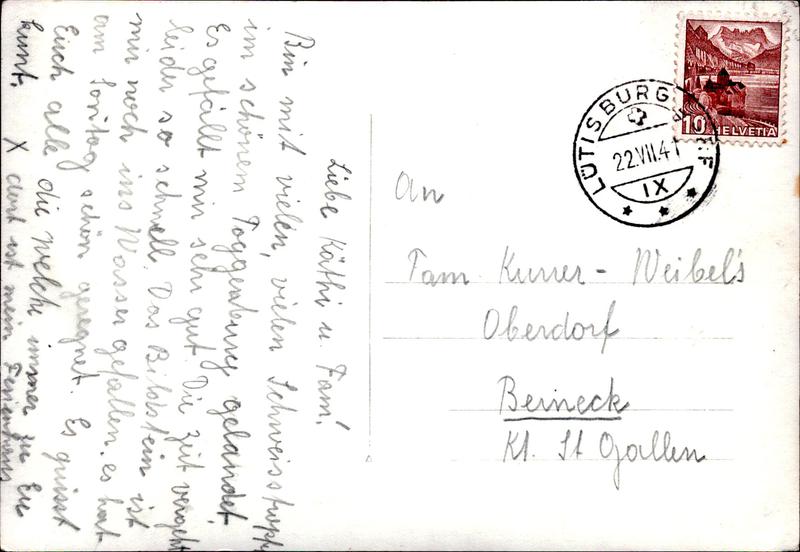 Liebe Käthi u. Fam!
Bin mit vielen, vielen Schweisstropf
im schönem Toggenburg gelandet.
Es gefällt mir sehr gut. Die Zeit vergeht
leider so schnell. Das Bibbstein ist
mir noch ins Wasser gefallen. es hat
am Sontag schön geregnet. Es grüsst
Euch alle die welche immer zu Eu
kunt. X dort ist mein Ferienhaus
An
Fam. Kurrer - Weibel's
Oberdorf
Berneck
Kt. St Gallen
LÜTISBURG
22.VII.41
IX
10 HELVETIA